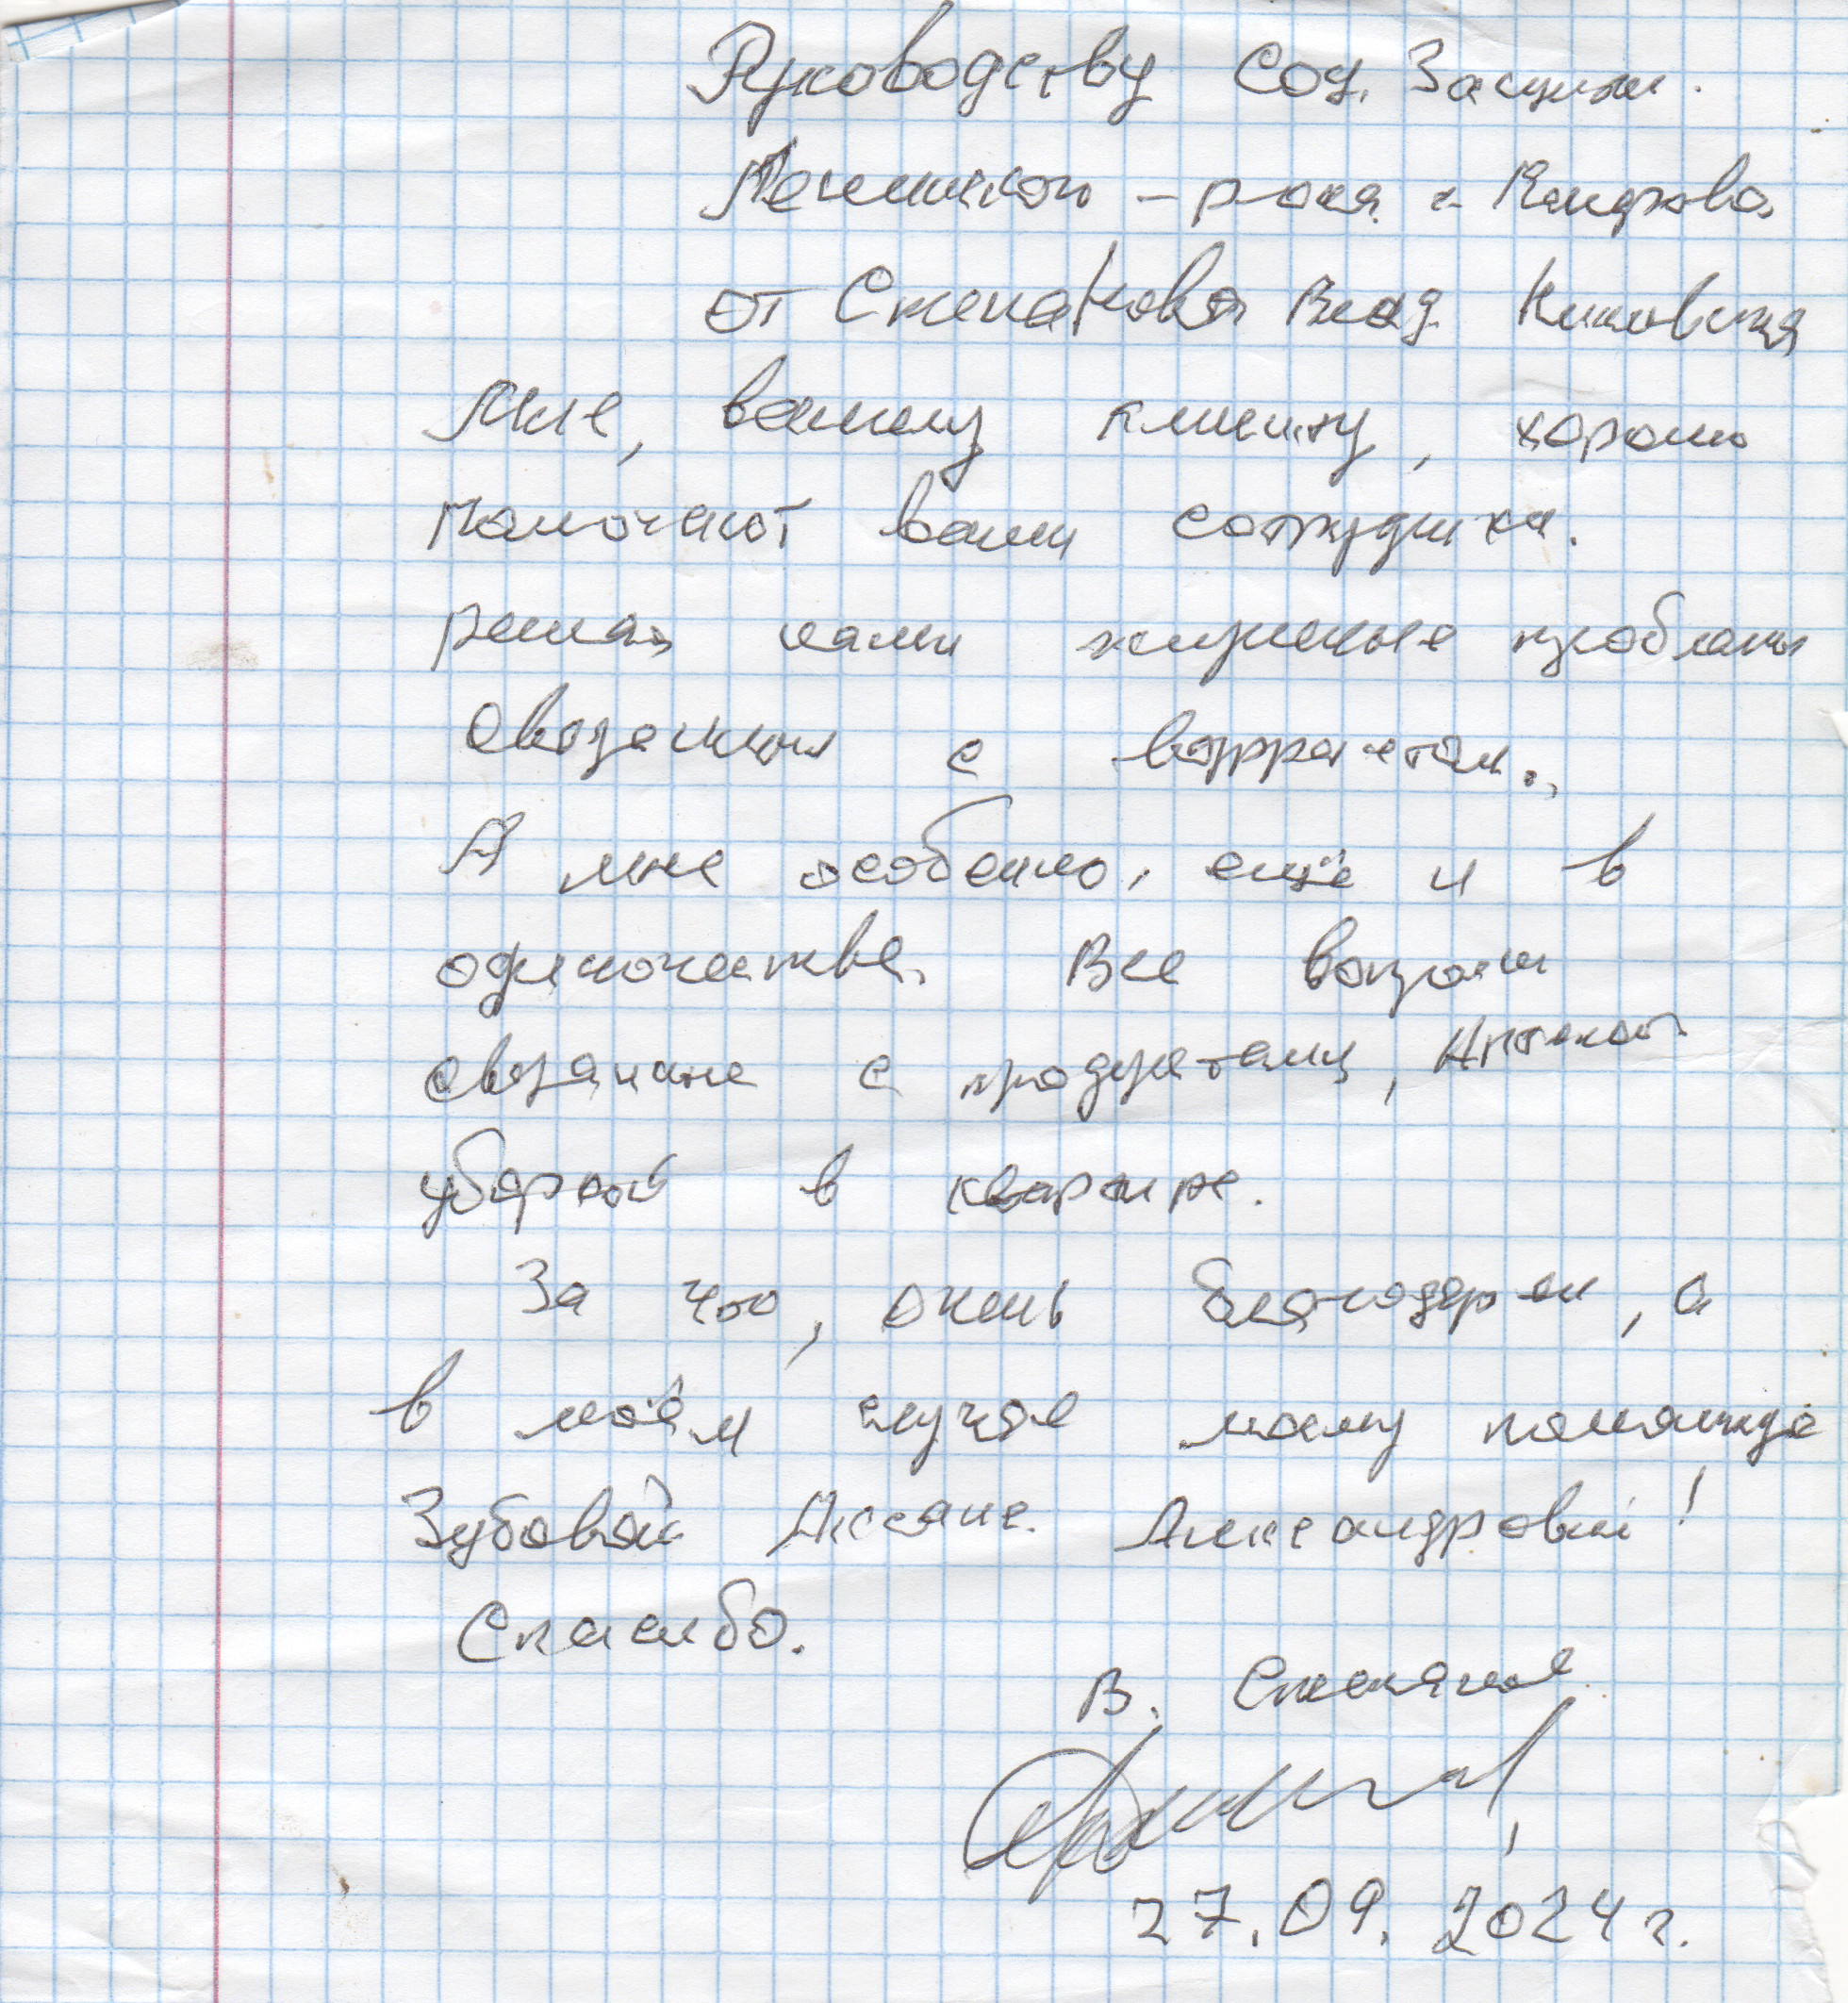 Руководству Соц. Защиты.
Ленинского - р-она г. Кемерова,
от Степанова Влад. Ник
Мне, вашему клиенту, хорошо
помогают ваши сотрудники.
решая наши жизненые проблемы
свезанные с возрастом.,
А мне особенно, ещё и в
одиночестве. Все вопросы
свезанные с продуктами, Аптекой
уборкой в квартире.
За что, очень благодарен, а
в моём случае моему помощнице
Зубовой Оксане Александровне!
Спасибо.
В. Степанов
27.09.2024 г.